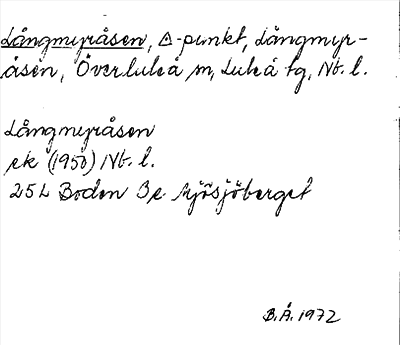 Långmyråsen, △-punkt, Långmyr-
åsen, Överluleå sn, Luleå tg, Nb. l.
Långmyråsen
ek (1950) Nb. l.
25 L Boden 3 e Mjösjöberget
B.Å. 1972